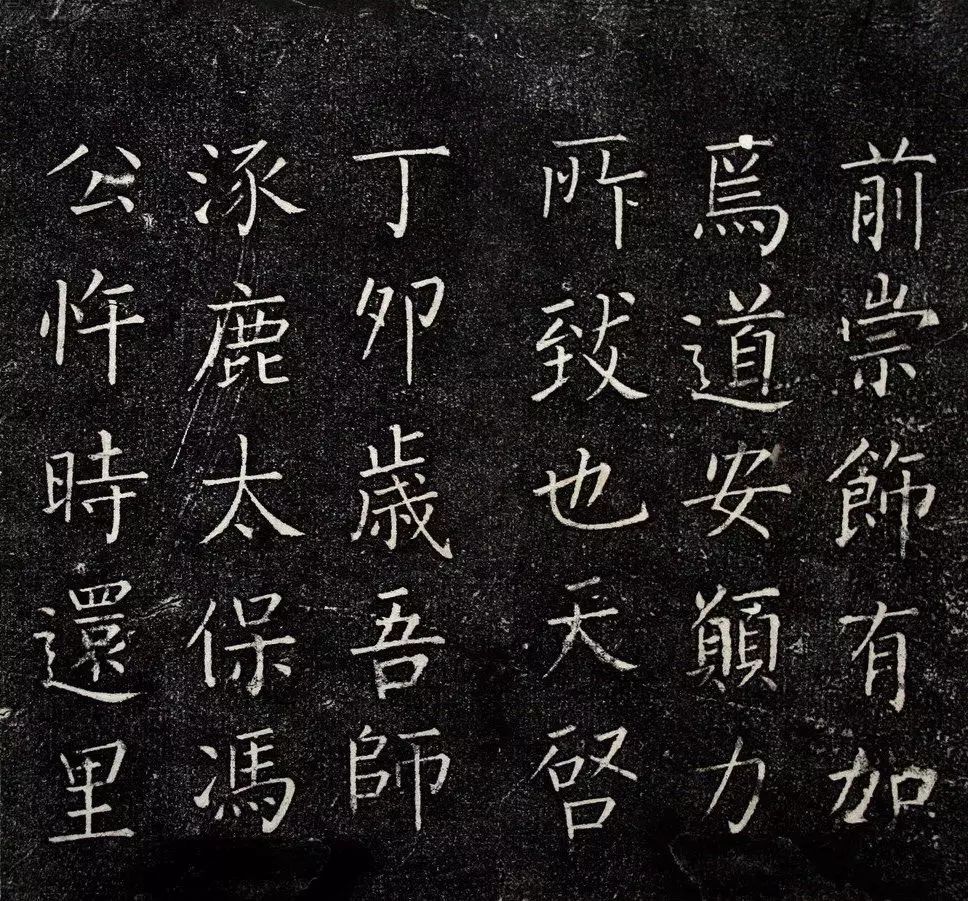 前崇飾有如
爲道安顛力
所致也天啓
丁卯歲吾師
涿鹿太保馮
公忤時還里